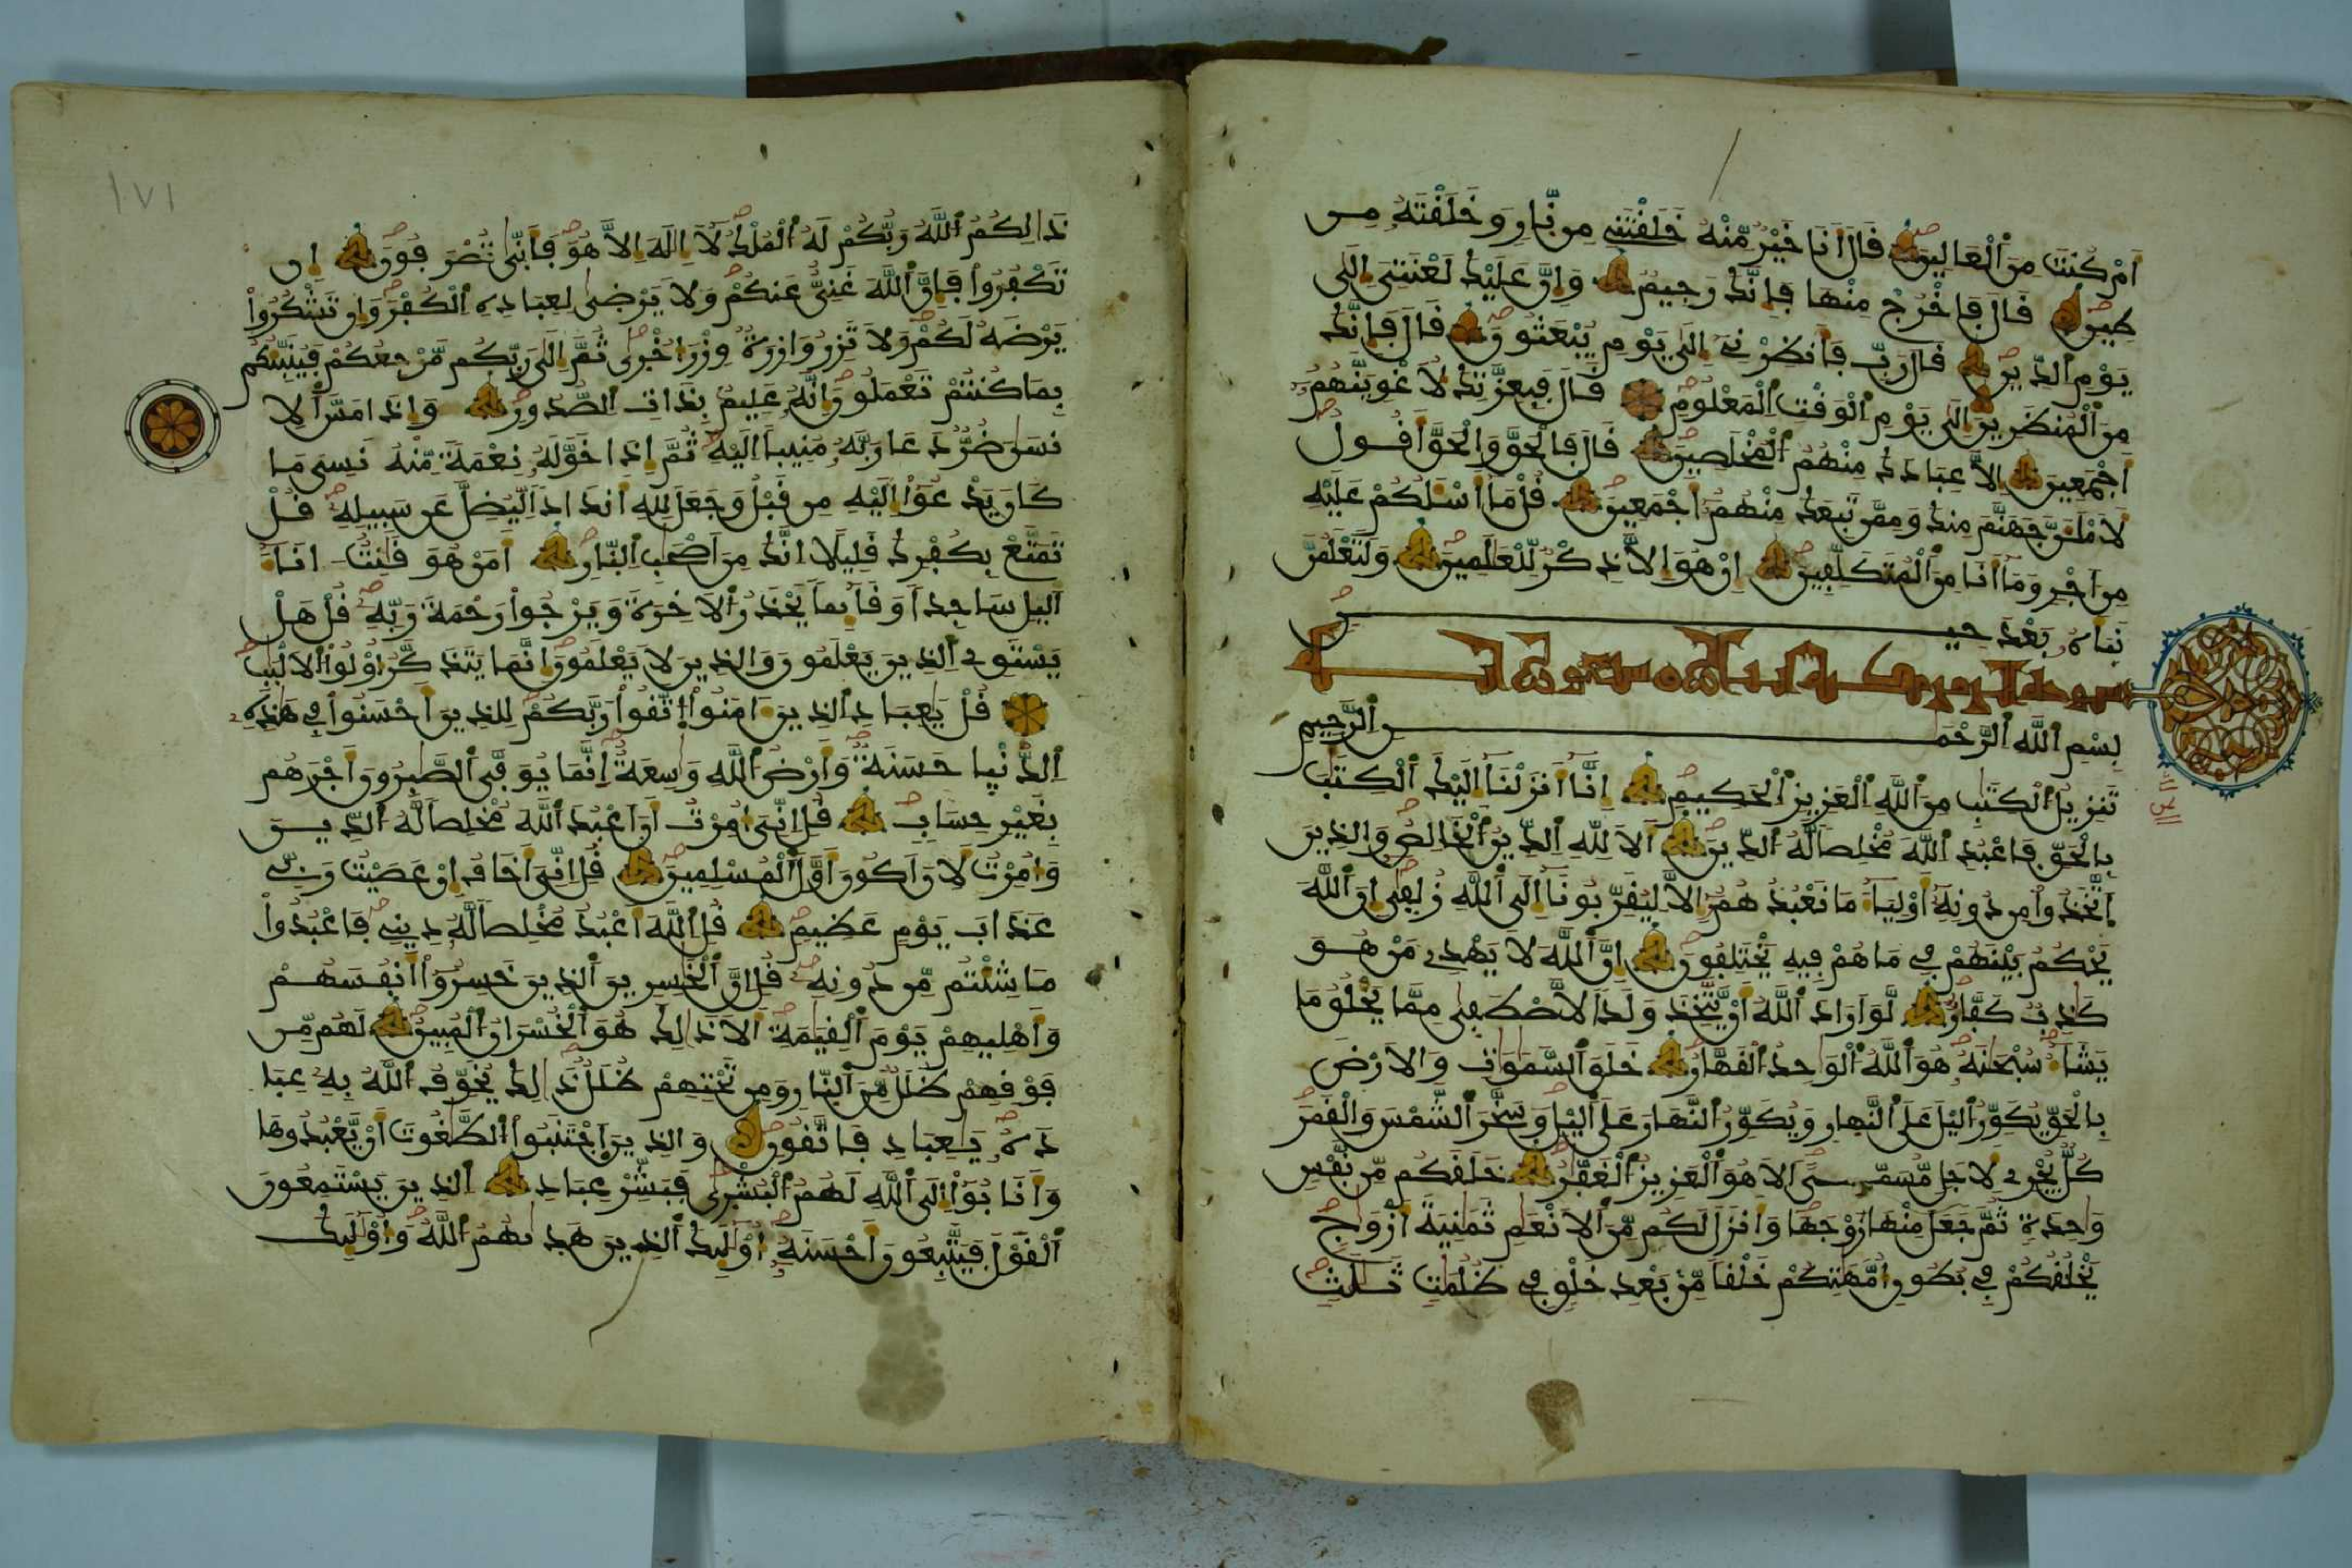 أم كنت من العالين قال أنا خير منه خلقتني من نار وخلقته من
طين قال فاخرج منها فإنك رجيم وإن عليك لعنتي إلى
يوم الدين قال رب فأنظرني إلى يوم يبعثون قال فإنك
من المنظرين إلى يوم الوقت المعلوم قال فبعزتك لأغوينهم
أجمعين إلا عبادك منهم المخلصين قال فالحق والحق أقول
لأملأن جهنم منك وممن تبعك منهم أجمعين قل ما أسلكم عليه
من أجر وما أنا من المتكلفين إن هو إلا ذكر للعلمين ولتعلمن
نبأه بعد حين
سورة الزمر
بسم الله الرحمن الرحيم
تنزيل الكتب من الله العزيز الحكيم إنا أنزلنا إليك الكتب
بالحق فاعبد الله مخلصا له الدين ألا لله الدين الخالص والذين
اتخذوا من دونه أولياء ما نعبدهم إلا ليقربونا إلى الله زلفى إن الله
يحكم بينهم في ما هم فيه يختلفون إن الله لا يهدي من هو
كذب كفار لو أراد الله أن يتخذ ولدا لاصطفى مما يخلق ما
يشاء سبحنه هو الله الواحد القهار خلق السموات والأرض
بالحق يكور اليل على النهار ويكور النهار على اليل وسخر الشمس والقمر
كل يجري لأجل مسمى ألا هو العزيز الغفر خلقكم من نفس
واحدة ثم جعل منها زوجها وأنزل لكم من الأنعم ثمنية أزوج
يخلقكم في بطون أمهتكم خلقا من بعد خلق في ظلمت ثلث
ذالكم الله ربكم له الملك لا إله إلا هو فأنى تصرفون إن
تكفروا فإن الله غني عنكم ولا يرضى لعباده الكفر وإن تشكروا
يرضه لكم ولا تزر وازرة وزر أخرى ثم إلى ربكم مرجعكم فينبئكم
بما كنتم تعملون إنه عليم بذات الصدور وإذا مس الا
نسن ضر دعا ربه منيبا إليه ثم إذا خوله نعمة منه نسي ما
كان يدعوا إليه من قبل وجعل لله أندادا ليضل عن سبيله قل
تمتع بكفرك قليلا إنك من أصحب النار أمن هو قنت اناء
اليل ساجدا وقائما يحذر الأخرة ويرجوا رحمة ربه قل هل
يستوي الذين يعلمون والذين لا يعلمون إنما يتذكر أولوا الألبب
قل يعباد الذين امنوا اتقوا ربكم للذين أحسنوا في هذه
الدنيا حسنة وأرض الله واسعة إنما يوفى الصبرون أجرهم
بغير حساب قل إني أمرت أن أعبد الله مخلصا له الدين
وأمرت لأن أكون أول المسلمين قل إني أخاف إن عصيت ربي
عذاب يوم عظيم قل الله أعبد مخلصا له ديني فاعبدوا
ما شئتم من دونه قل إن الخسرين الذين خسروا أنفسهم
وأهليهم يوم القيمة ألا ذالك هو الخسران المبين لهم من
فوقهم ظلل من النار ومن تحتهم ظلل ذالك يخوف الله به عبا
ده يعباد فاتقون والذين اجتنبوا الطغوت أن يعبدوها
وأنابوا إلى الله لهم البشرى فبشر عباد الذين يستمعون
القول فيتبعون أحسنه أولئك الذين هديهم الله وأولئك
١٧١